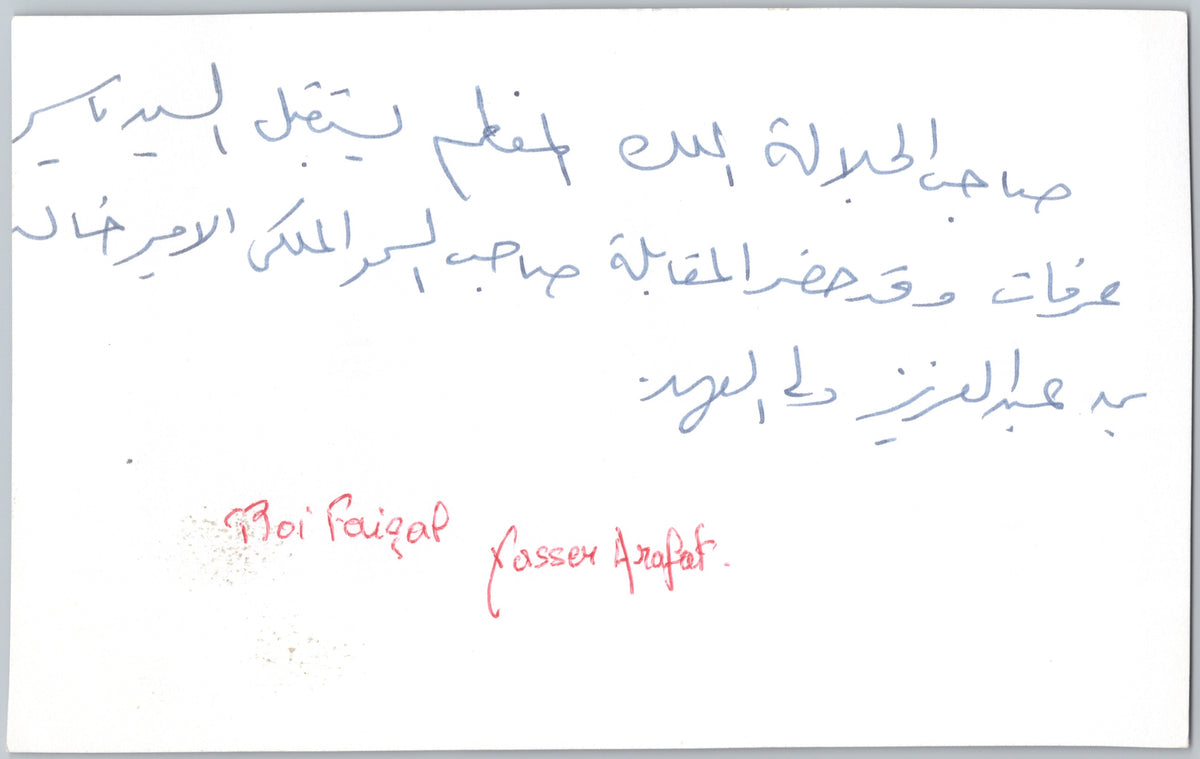 صاحب الجلالة الملك المعظم يستقبل السيد ياسر
عرفات وقد حضر المقابلة صاحب السمو الملكي الامير خالد
بن عبد العزيز ولي العهد.
Roi Faiçal
Yasser Arafat.